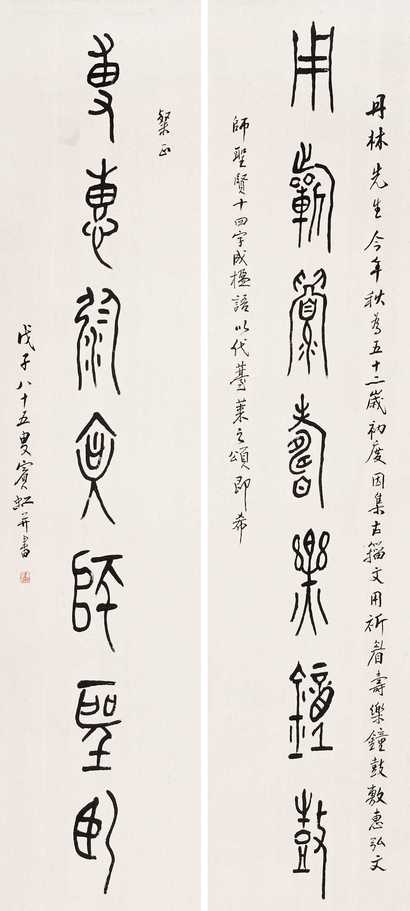 丹林先生今年秋為五十二歲初度因集古籀文用祈眉壽樂鐘鼓敷惠弘文
用祈眉壽樂鐘鼓
師聖賢十四字成楹語以代薹萊之頌即希
粲正
敷惠弘文師聖賢
戊子八十五叟賓虹并書